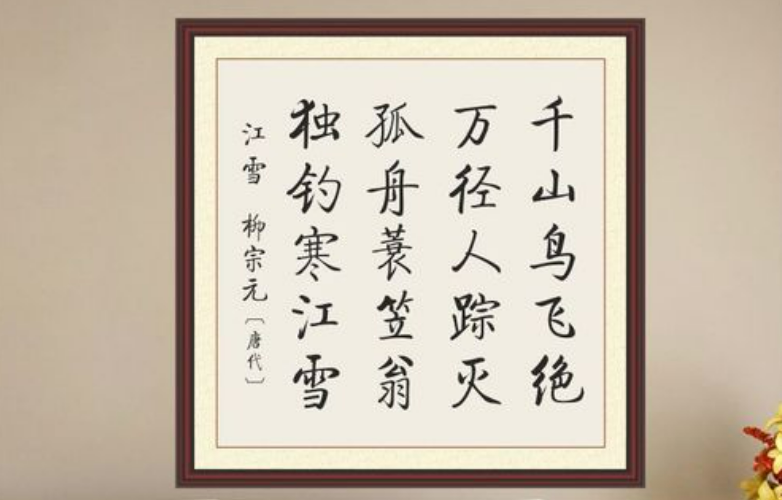 千山鸟飞绝
万径人踪灭
孤舟蓑笠翁
独钓寒江雪
江雪 柳宗元〔唐代〕